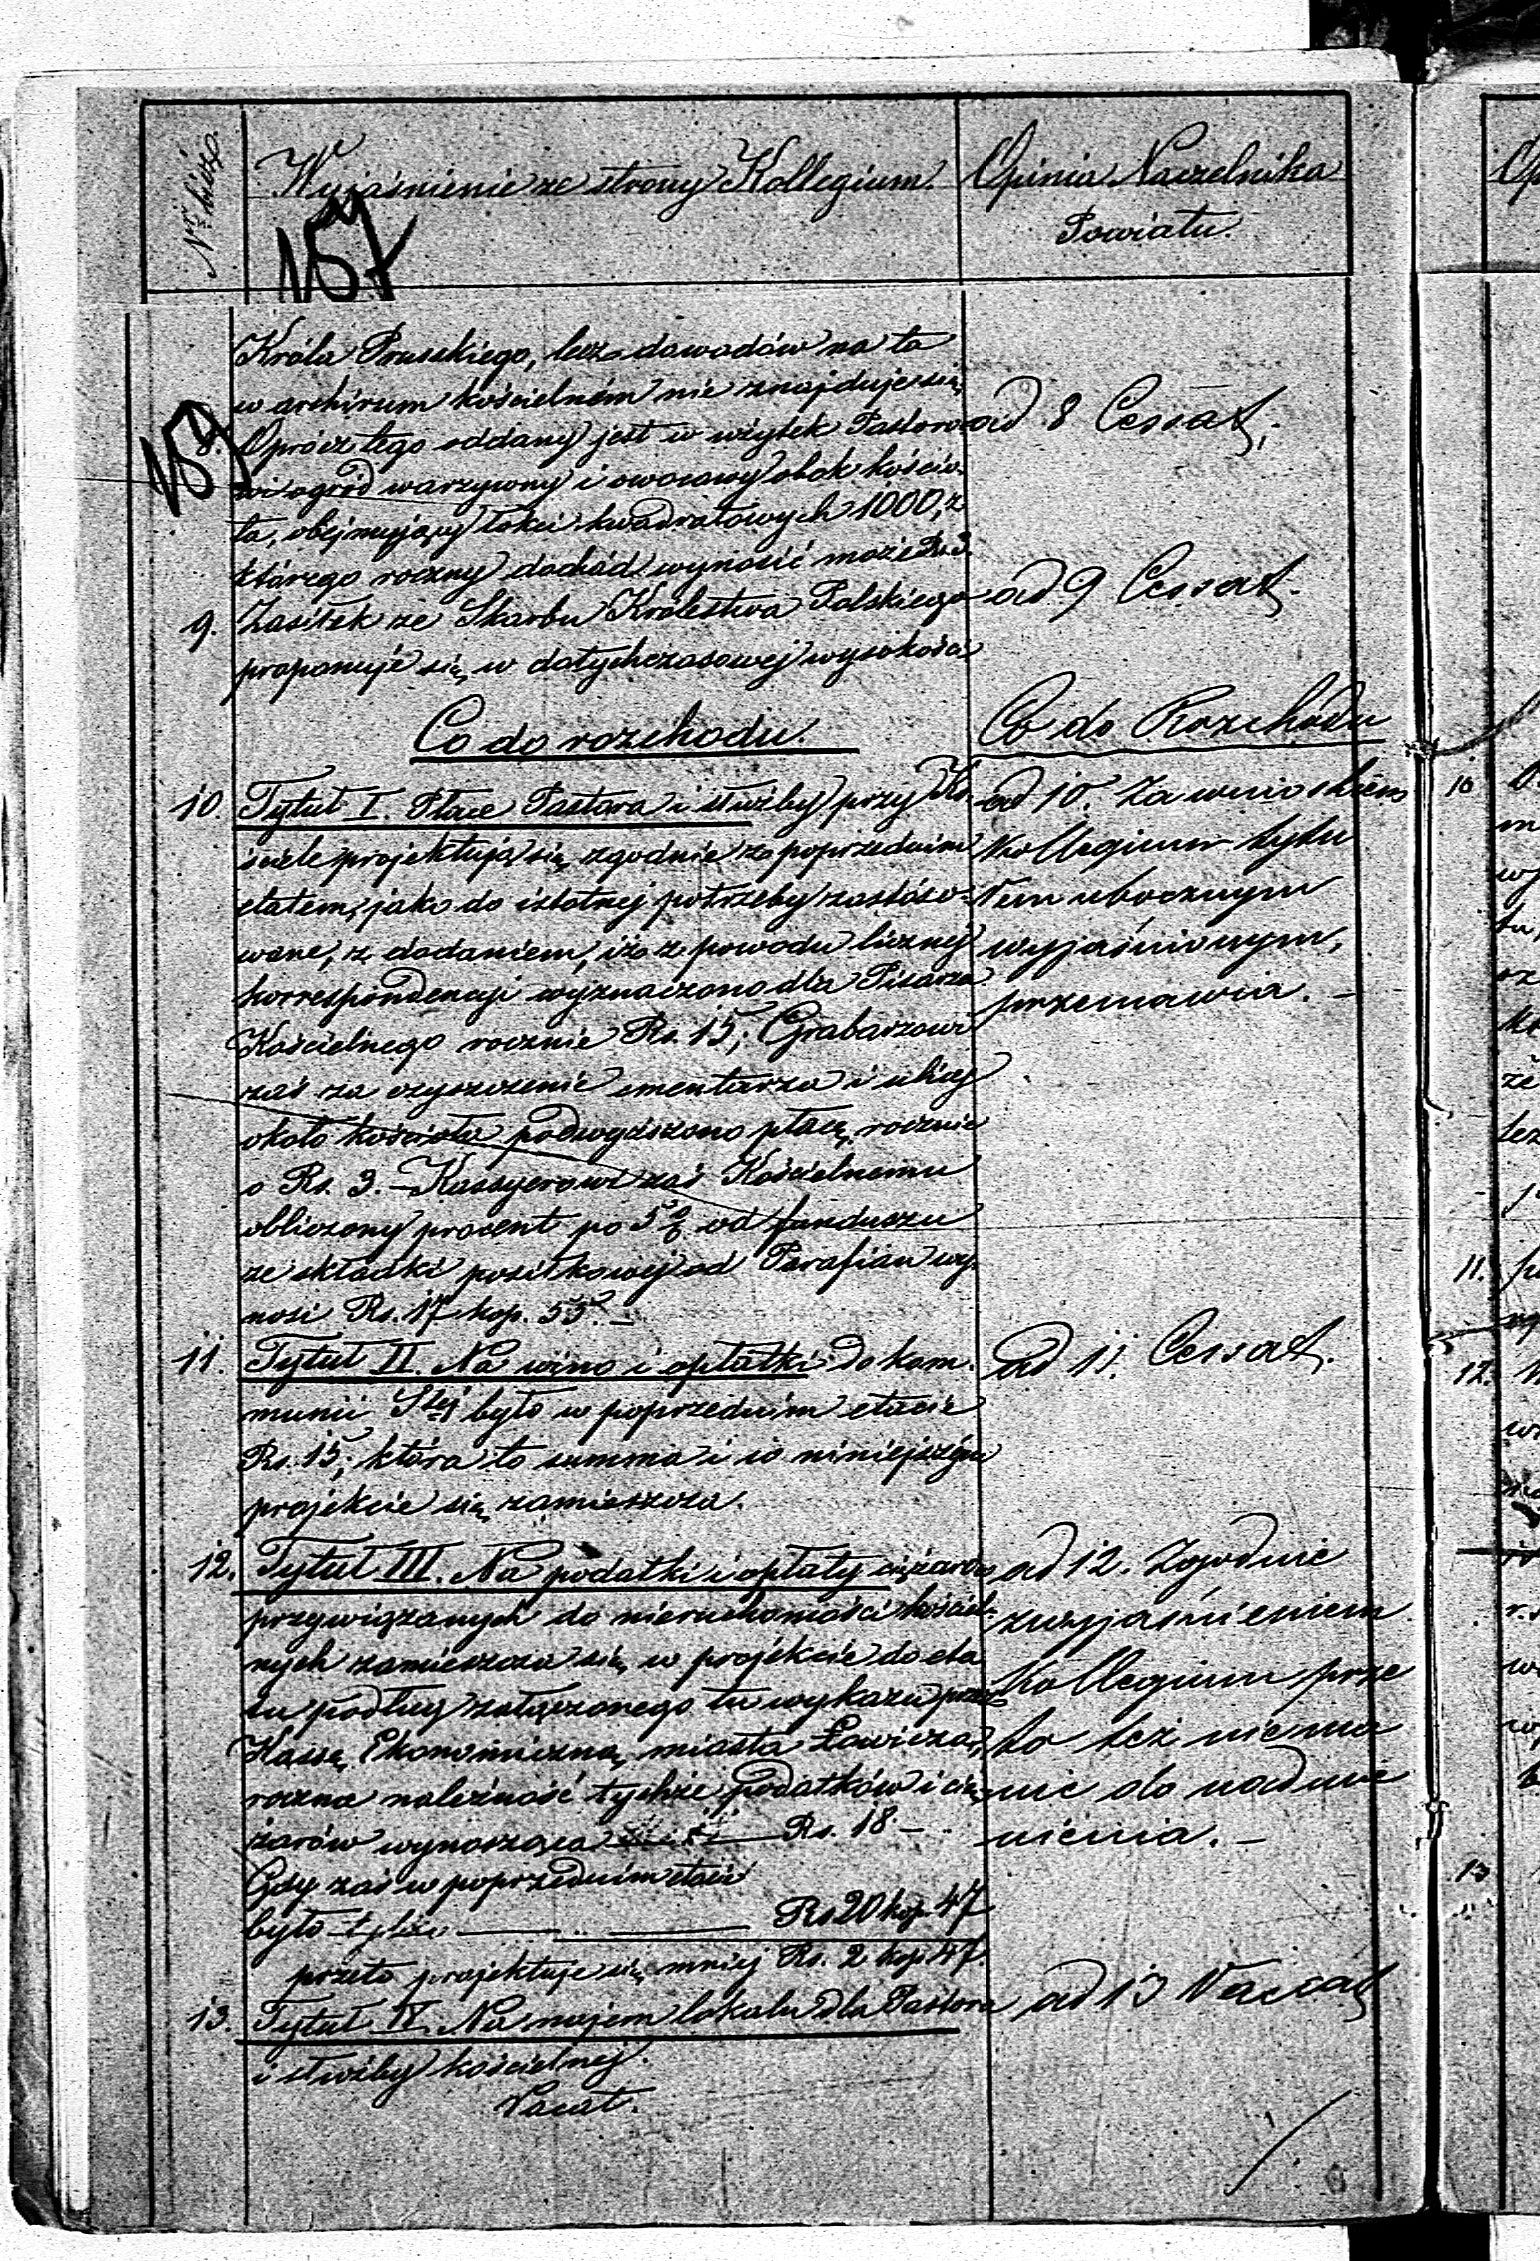 Nr bież.
Wyjaśnienie ze strony Kollegium.
157
Opinia Naczelnika
Powiatu.
Króla Pruskiego, lecz dowodów na to
w archivum kościelném nie znajduje się
8. Oprócz tego oddany jest w użytek Pastoro-
wi ogród warzywny i owocowy obok kościo-
ła, obejmujący łokci kwadratowych 1000, z
którego roczny dochód wynosić może Rs. 3.
9. Zasiłek ze Skarbu Królestwa Polskiego
proponuje się w dotychczasowej wysokości
Co do rozchodu.
10. Tytuł I. Płace Pastora i służby przy Ko-
ściele projektują się zgodnie z poprzednim
etatem, jako do istotnej potrzeby zastóso-
wane, z dodaniem, iż z powodu licznej
korrespondencyi wyznaczono dla Pisarza
Kościelnego rocznie Rs. 15; Grabarzowi
zaś za czyszczenie cmentarza i ulicy
około kościoła podwyższono płacę rocznie
o Rs. 3. – Kassyerowi zaś Kościelnemu
obliczony procent po 5% od funduszu
ze składki posiłkowej od Parafian wy-
nosi Rs. 17 kop. 55. –
11. Tytuł II. Na wino i opłatki do kom-
munii Stej było w poprzednim etacie
Rs. 15; która to summa i w niniejszym
projekcie się zamieszcza.
12. Tytuł III. Na podatki i opłaty ciężarów
przywiązanych do nieruchomości kościel-
nych zamieszcza się w projekcie do eta-
tu podług załączonego tu wykazu przez
Kassę Ekonomiczną miasta Łowicza,
roczna należność tychże podatków i cię-
żarów wynosząca Rs. 18 –
Gdy zaś w poprzednim etacie
było Rs 20 kop. 47
przeto projektuje się mniej Rs. 2 kop 47.
13. Tytuł IV. Na najem lokalu dla Pastora
i służby kościelnej.
Vacat.
ad 8 Cessat.
ad 9 Cessat.
Co do Rozchodu
ad 10. Za wnioskiem
Kollegium tytu
łem ubocznym
wyjaśnionym,
przemawia. –
ad 11. Cessat.
ad 12. Zgodnie
z wyjaśnieniem
Kollegium prze
to też niema
nic do nadmie
nienia. –
ad 13 Vaccat
10
11.
12.
13